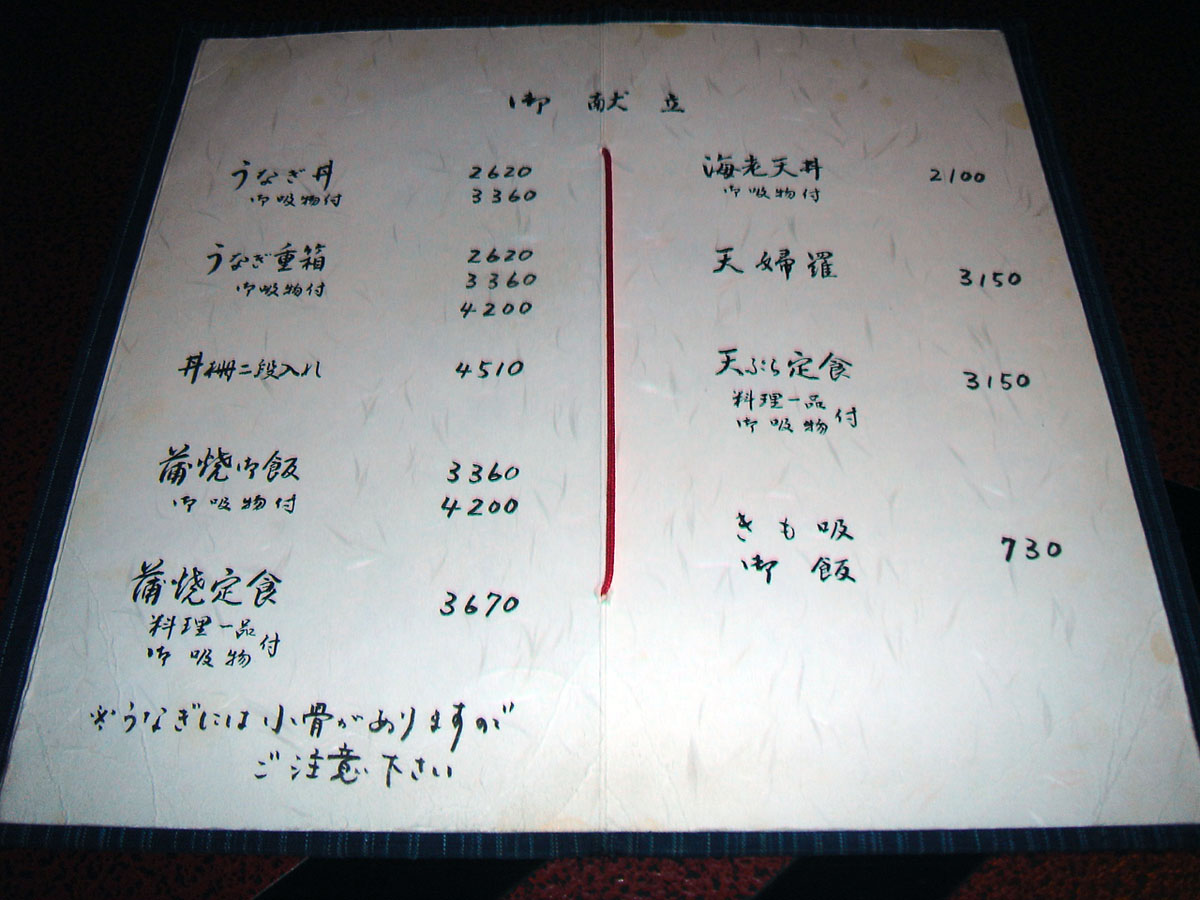 御献立
うなぎ丼 2620
御吸物付 3360
うなぎ重箱 2620
御吸物付 3360
4200
丼柵二段入れ 4510
蒲焼御飯 3360
御吸物付 4200
蒲焼定食 3670
料理一品
御吸物付
※うなぎには小骨がありますので
ご注意下さい
海老天丼 2100
御吸物付
天婦羅 3150
天ぷら定食 3150
料理一品
御吸物付
きも吸
御飯 730